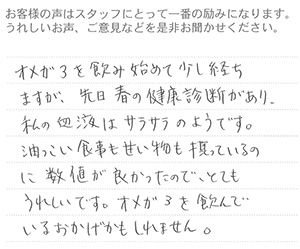 お客様の声はスタッフにとって一番の励みになります。
うれしいお声、ご意見などを是非お聞かせください。
オメガ3を飲み始めて少し経ち
ますが、先日春の健康診断があり、
私の血液はサラサラのようです。
油っこい食事も甘い物も摂っているの
に数値が良かったので、とても
うれしいです。オメガ3を飲んで
いるおかげかもしれません。